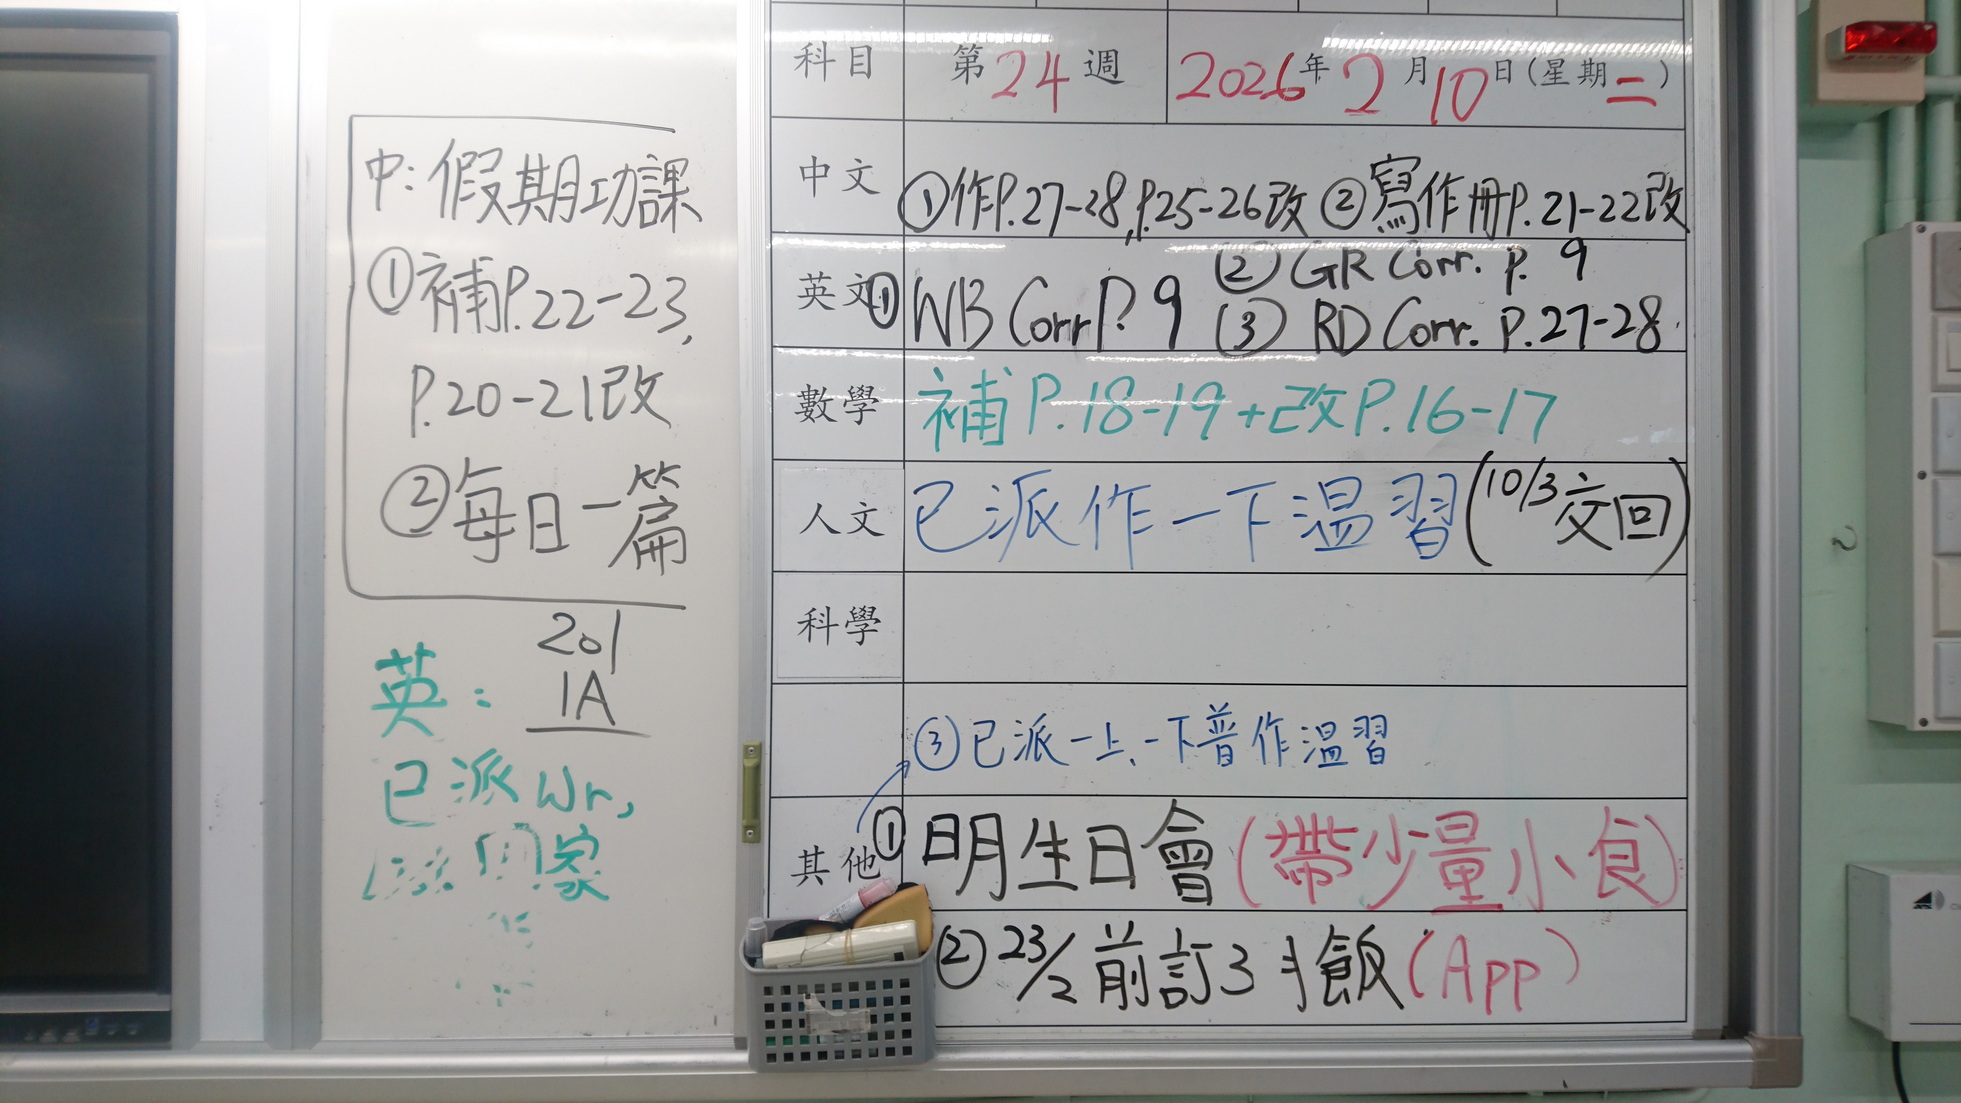 中：假期功課
①補P.22-23,
P.20-21改
②每日一篇
201
1A
英：
已派Wr,
家
科目 第24週 2026年2月10日(星期二)
中文 ①作P.27-28,P.25-26改 ②寫作冊P.21-22改
英文 ①WB Corr P.9 ②GR Corr. P. 9
③ RD Corr. P.27-28.
數學 補P.18-19+改P.16-17
人文 已派作一下溫習(10/3交回)
科學
③已派一上、一下普作溫習
其他 ①明生日會(帶少量小食)
②23/2前訂3月飯(App)